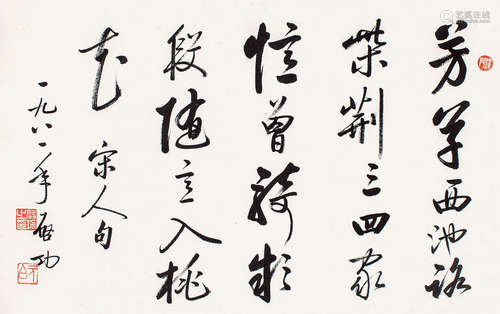 芳草西池路
柴荆三四家
憶曾騎款
段随意入桃
花 宋人句
一九八一年 啟功